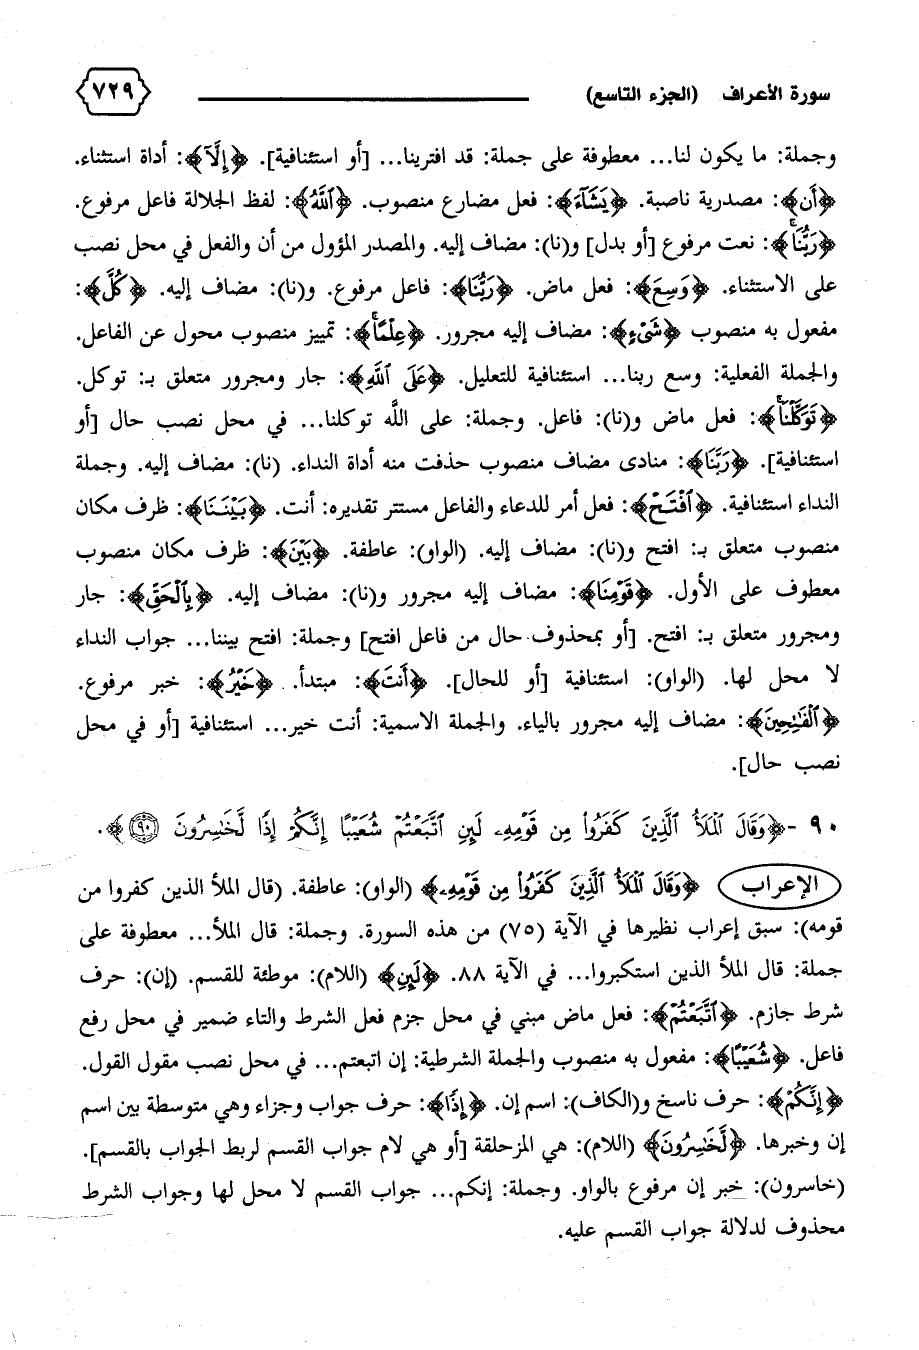 سورة الأعراف (الجزء التاسع) ٧٢٩
وجملة: ما يكون لنا... معطوفة على جملة: قد افترينا... [أو استئنافية]. ﴿إِلَّآ﴾: أداة استثناء.
﴿أَن﴾: مصدرية ناصبة. ﴿يَشَآءَ﴾: فعل مضارع منصوب. ﴿ٱللَّهُ﴾: لفظ الجلالة فاعل مرفوع.
﴿رَبُّنَاۚ﴾: نعت مرفوع [أو بدل] و(نا): مضاف إليه. والمصدر المؤول من أن والفعل في محل نصب
على الاستثناء. ﴿وَسِعَ﴾: فعل ماض. ﴿رَبُّنَا﴾: فاعل مرفوع. و(نا): مضاف إليه. ﴿كُلَّ﴾:
مفعول به منصوب ﴿شَىْءٍ﴾: مضاف إليه مجرور. ﴿عِلْمًاۚ﴾: تمييز منصوب محول عن الفاعل.
والجملة الفعلية: وسع ربنا... استئنافية للتعليل. ﴿عَلَى ٱللَّهِ﴾: جار ومجرور متعلق بـ: توكل.
﴿تَوَكَّلْنَاۚ﴾: فعل ماض و(نا): فاعل. وجملة: على اللَّه توكلنا... في محل نصب حال [أو
استئنافية]. ﴿رَبَّنَا﴾: منادى مضاف منصوب حذفت منه أداة النداء. (نا): مضاف إليه. وجملة
النداء استئنافية. ﴿ٱفْتَحْ﴾: فعل أمر للدعاء والفاعل مستتر تقديره: أنت. ﴿بَيْنَنَا﴾: ظرف مكان
منصوب متعلق بـ: افتح و(نا): مضاف إليه. (الواو): عاطفة. ﴿بَيْنَ﴾: ظرف مكان منصوب
معطوف على الأول. ﴿قَوْمِنَا﴾: مضاف إليه مجرور و(نا): مضاف إليه. ﴿بِٱلْحَقِّ﴾: جار
ومجرور متعلق بـ: افتح. [أو بمحذوف حال من فاعل افتح] وجملة: افتح بيننا... جواب النداء
لا محل لها. (الواو): استئنافية [أو للحال]. ﴿أَنتَ﴾: مبتدأ. ﴿خَيْرُ﴾: خبر مرفوع.
﴿ٱلْفَٰتِحِينَ﴾: مضاف إليه مجرور بالياء. والجملة الاسمية: أنت خير... استئنافية [أو في محل
نصب حال].
٩٠ -﴿وَقَالَ ٱلْمَلَأُ ٱلَّذِينَ كَفَرُوا۟ مِن قَوْمِهِۦ لَئِنِ ٱتَّبَعْتُمْ شُعَيْبًا إِنَّكُمْ إِذًا لَّخَٰسِرُونَ ۝٩٠﴾.
الإعراب ﴿وَقَالَ ٱلْمَلَأُ ٱلَّذِينَ كَفَرُوا۟ مِن قَوْمِهِۦ﴾ (الواو): عاطفة. (قال الملأ الذين كفروا من
قومه): سبق إعراب نظيرها في الآية (٧٥) من هذه السورة. وجملة: قال الملأ... معطوفة على
جملة: قال الملأ الذين استكبروا... في الآية ٨٨. ﴿لَئِنِ﴾ (اللام): موطئة للقسم. (إن): حرف
شرط جازم. ﴿ٱتَّبَعْتُمْ﴾: فعل ماض مبني في محل جزم فعل الشرط والتاء ضمير في محل رفع
فاعل. ﴿شُعَيْبًا﴾: مفعول به منصوب والجملة الشرطية: إن اتبعتم... في محل نصب مقول القول.
﴿إِنَّكُمْ﴾: حرف ناسخ و(الكاف): اسم إن. ﴿إِذًا﴾: حرف جواب وجزاء وهي متوسطة بين اسم
إن وخبرها. ﴿لَّخَٰسِرُونَ﴾ (اللام): هي المزحلقة [أو هي لام جواب القسم لربط الجواب بالقسم].
(خاسرون): خبر إن مرفوع بالواو. وجملة: إنكم... جواب القسم لا محل لها وجواب الشرط
محذوف لدلالة جواب القسم عليه.